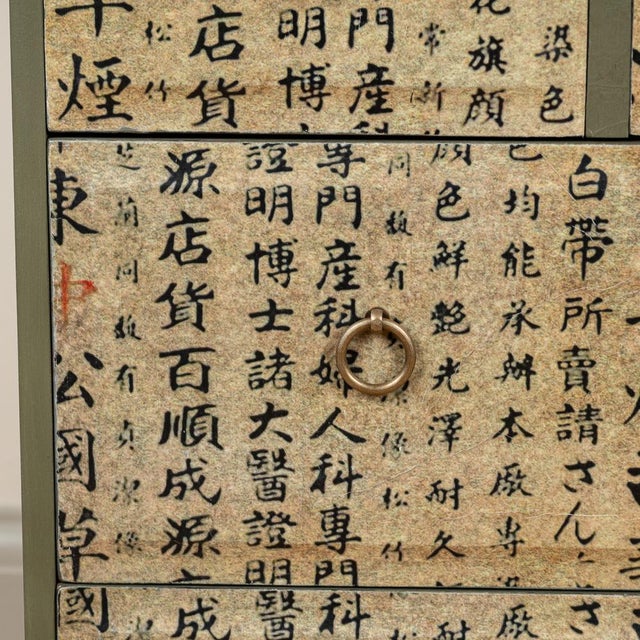 染色
花旗顔
常新
門產科
明博
店貨
松竹
草煙
白帶所賣請さん
色均能承辦本廠專
顔色鮮艷光澤耐久
同馥有
像松竹
專門產科婦人科專門
證明博士諸大醫證明
源店貨百順成源店
芝蘭同馥有貞潔像
東中
國草
門科
成
國